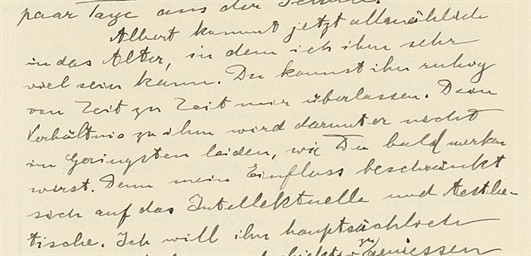 paar Tage aus der Ferien.
Albert kommt jetzt allmählich
in das Alter, in dem ich ihm sehr
viel sein kann. Du kannst ihn ruhig
von Zeit zu Zeit mir überlassen. Dein
Verhältnis zu ihm wird darunter nicht
im Geringsten leiden, wie Du bald merken
wirst. Denn mein Einfluss beschränkt
sich auf das Intellektuelle und Aesthe-
tische. Ich will ihn hauptsächlich
zu geniessen